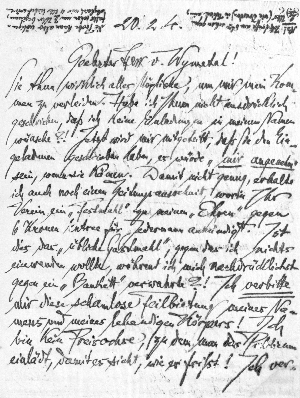 20. 2. 4.
Geehrter Herr v. Wymetal!
Sie thun wirklich alles Mögliche, um mir mein Kom-
men zu verleiden. Habe ich Ihnen nicht ausdrücklich
geschrieben, daß ich keine Einladungen in meinem Namen
wünsche?! Jetzt wird mir mitgeteilt, daß Sie den Ein-
geladenen geschrieben haben, es würde „mir angenehm
sein, wenn sie kämen". Damit nicht genug, erhalte
ich auch noch einen Zeitungsausschnitt, worin Ihr
Verein ein „Festmahl" zu meinen „Ehren" gegen
6 Kronen Entree für jedermann ankündigt! Ist
dies das „übliche Gastmahl", gegen das ich nichts
einwenden wollte, während ich mich nachdrücklichst
gegen ein „Bankett" verwahrte?! Ich verbitte
mir diese schamlose Feilbietung meines Na-
mens und meines lebendigen Körpers! Ich
bin kein Freiochse, zu dem man das Publikum
einlädt, damit es sieht, wie er frißt! Ich ver-